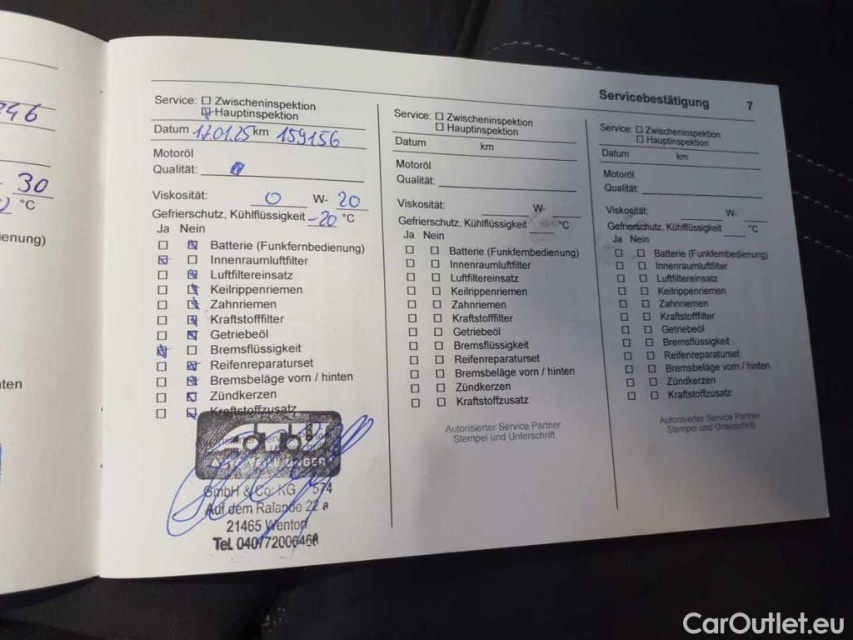 246
30
°C
enung)
ten
Servicebestätigung 7
Service: Zwischeninspektion
Hauptinspektion
Datum 17.01.25 km 159156
Motoröl
Qualität:
Viskosität: 0 W- 20
Gefrierschutz, Kühlflüssigkeit -20 °C
Ja Nein
Batterie (Funkfernbedienung)
Innenraumluftfilter
Luftfiltereinsatz
Keilrippenriemen
Zahnriemen
Kraftstofffilter
Getriebeöl
Bremsflüssigkeit
Reifenreparaturset
Bremsbeläge vorn / hinten
Zündkerzen
Kraftstoffzusatz
GmbH & Co. KG 574
Auf dem Ralande 22 a
21465 Wentorf
Tel. 040/72006468
Service: Zwischeninspektion
Hauptinspektion
Datum km
Motoröl
Qualität:
Viskosität: W-
Gefrierschutz, Kühlflüssigkeit °C
Ja Nein
Batterie (Funkfernbedienung)
Innenraumluftfilter
Luftfiltereinsatz
Keilrippenriemen
Zahnriemen
Kraftstofffilter
Getriebeöl
Bremsflüssigkeit
Reifenreparaturset
Bremsbeläge vorn / hinten
Zündkerzen
Kraftstoffzusatz
Autorisierter Service Partner
Stempel und Unterschrift
Service: Zwischeninspektion
Hauptinspektion
Datum km
Motoröl
Qualität:
Viskosität: W-
Gefrierschutz, Kühlflüssigkeit °C
Ja Nein
Batterie (Funkfernbedienung)
Innenraumluftfilter
Luftfiltereinsatz
Keilrippenriemen
Zahnriemen
Kraftstofffilter
Getriebeöl
Bremsflüssigkeit
Reifenreparaturset
Bremsbeläge vorn / hinten
Zündkerzen
Kraftstoffzusatz
Autorisierter Service Partner
Stempel und Unterschrift
CarOutlet.eu